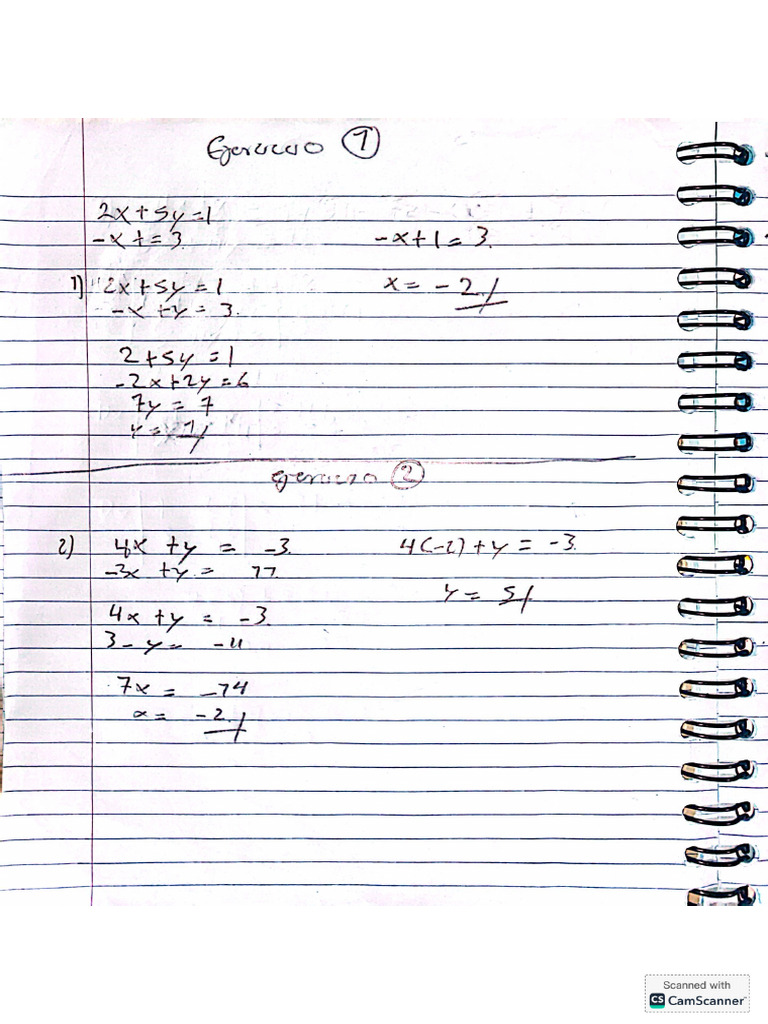 Ejercicio 1
2x + 5y = 1
-x + = 3
-x + 1 = 3
1) 2x + 5y = 1
x = -2
-x + y = 3
2 + 5y = 1
-2x + 2y = 6
7y = 7
y = 1
Ejercicio 2
2) 4x + y = -3
4(-2) + y = -3
-3x + y = 11
y = 5
4x + y = -3
3 - y = -11
7x = -14
x = -2
Scanned with
CS CamScanner